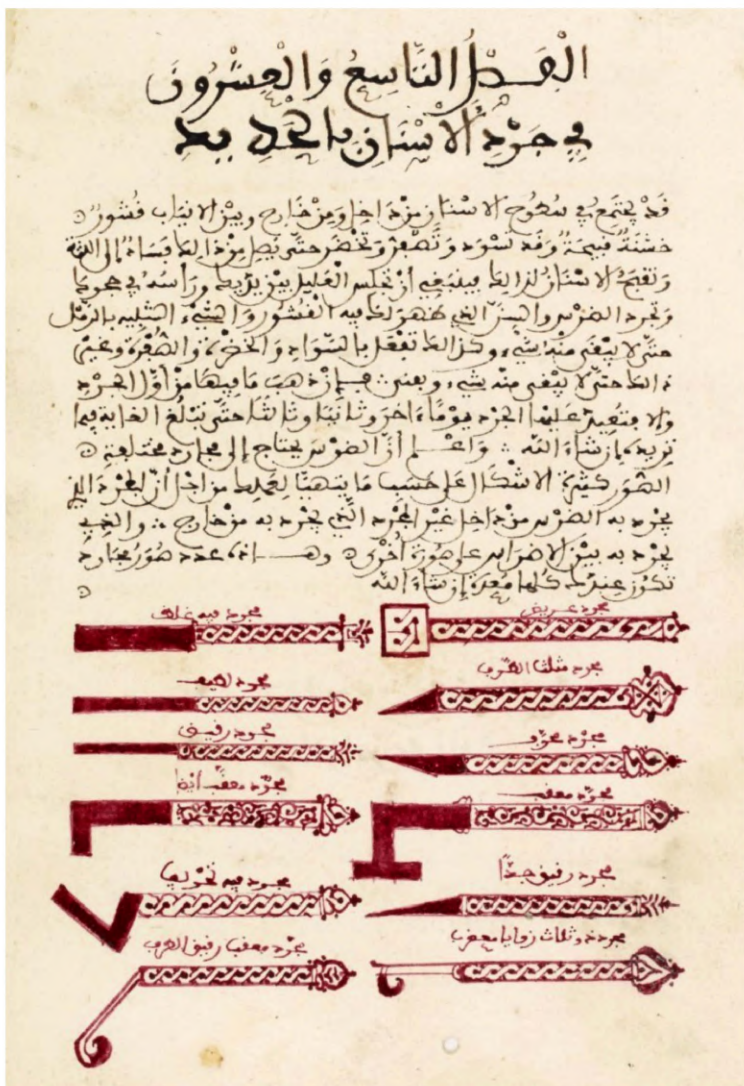 الفصل التاسع والعشرون
في جرد الأسنان بالحديد
قد يجتمع في سطوح الاسنان من داخل ومن خارج وبين الانياب قشور
خشنة قبيحة وقد تسود وتصفر وتخضر حتى يصل من ذالك فساد إلى اللثة
وتقبح الاسنان لذالك فينبغي أن تجلس العليل بين يديك ورأسه في حجرك
وتجرد الضرس والسن الذي ظهر لك فيه القشور والشيء الشبيه بالرمل
حتى لا يبقى منه شيء وكذالك تفعل بالسواد والخضرة والصفرة وغير
ذالك حتى لا يبقى منه شيء وينقى فإن ذهب ما فيها من أول الجرد
والا فتعيد عليها الجرد يوما ءاخر وثانيا وثالثا حتى تبلغ الغاية فيما
تريده إن شاء الله واعلم أن الضرس يحتاج إلى مجارد مختلفة
الصور كثيرة الاشكال على حسب ما يتهيأ لعملك من اجل أن المجرد الذي
يجرد به الضرس من داخل غير المجرد الذي يجرد به من خارج والذي
يجرد به بين الاضراس على صورة أخرى وهاذه عدة صور مجارد
تكون عندك كلها معدة إن شاء الله
مجرد عريض
مجرد فيه غلظ
مجرد مثلث الطرف
مجرد لطيف
مجرد
مجرد رقيق
مجرد معقف
مجرد معقف أيضا
مجرد رقيق جدا
مجرد فيه
مجرد ذو ثلاث زوايا معقف
مجرد معقف رقيق الطرف